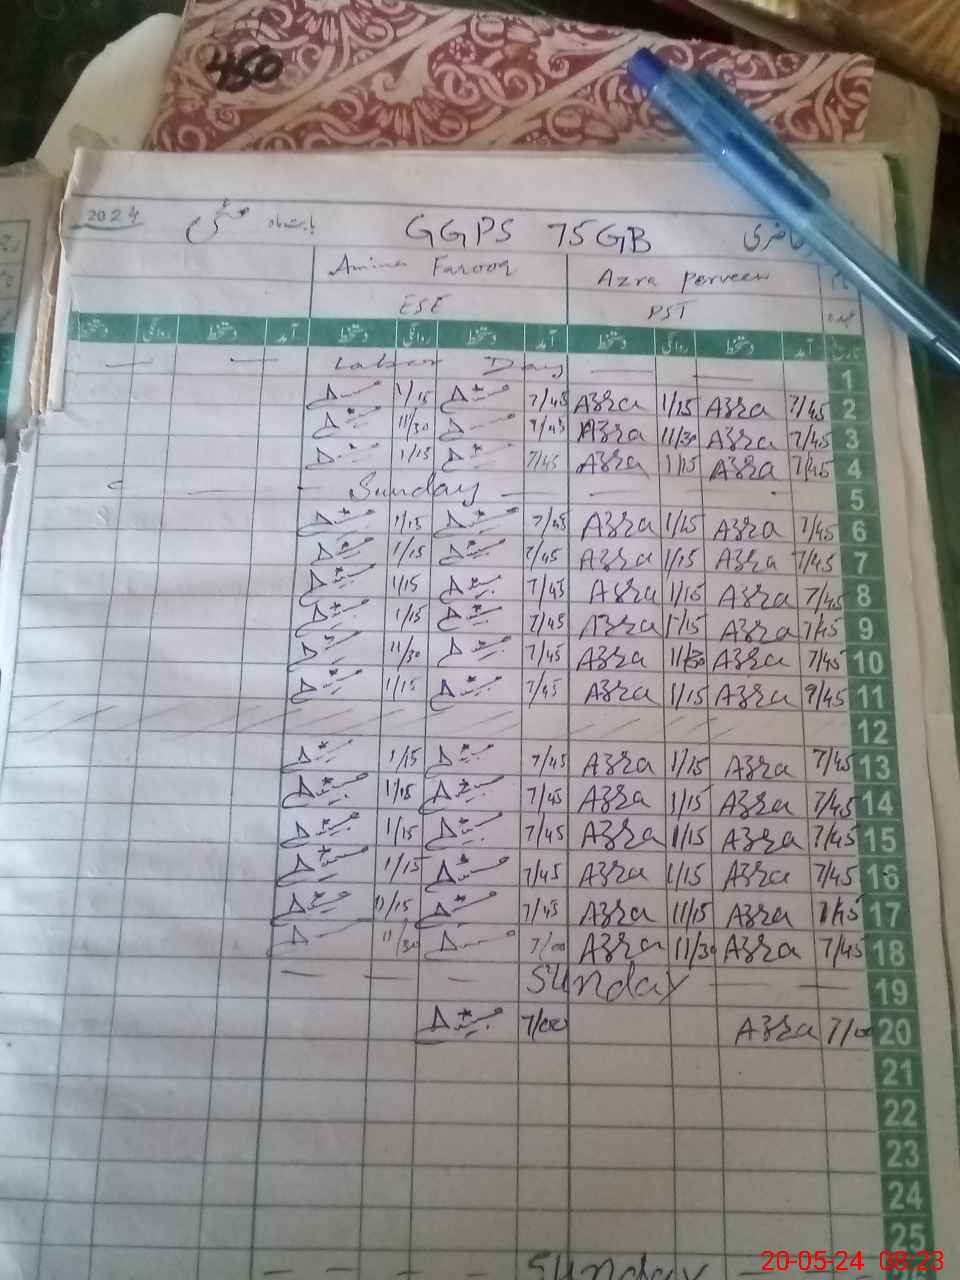 450
2024 مئی بابت ماہ GGPS 75GB حاضری
Amina Farooq Azra Perveen
ESE PST عہدہ
دستخط روانگی دستخط آمد دستخط روانگی دستخط آمد دستخط روانگی دستخط آمد تاریخ
Labor Day 1
1/15 7/45 Azra 1/15 Azra 7/45 2
11/30 7/45 Azra 11/30 Azra 7/45 3
1/15 7/45 Azra 1/15 Azra 7/45 4
Sunday 5
1/15 7/45 Azra 1/15 Azra 7/45 6
1/15 7/45 Azra 1/15 Azra 7/45 7
1/15 7/45 Azra 1/15 Azra 7/45 8
1/15 7/45 Azra 1/15 Azra 7/45 9
11/30 7/45 Azra 11/30 Azra 7/45 10
1/15 7/45 Azra 1/15 Azra 9/45 11
12
1/15 7/45 Azra 1/15 Azra 7/45 13
1/15 7/45 Azra 1/15 Azra 7/45 14
1/15 7/45 Azra 1/15 Azra 7/45 15
1/15 7/45 Azra 1/15 Azra 7/45 16
11/15 7/45 Azra 11/15 Azra 7/45 17
11/30 7/00 Azra 11/30 Azra 7/45 18
Sunday 19
7/00 Azra 7/00 20
21
22
23
24
25
Sunday
20-05-24 08:23